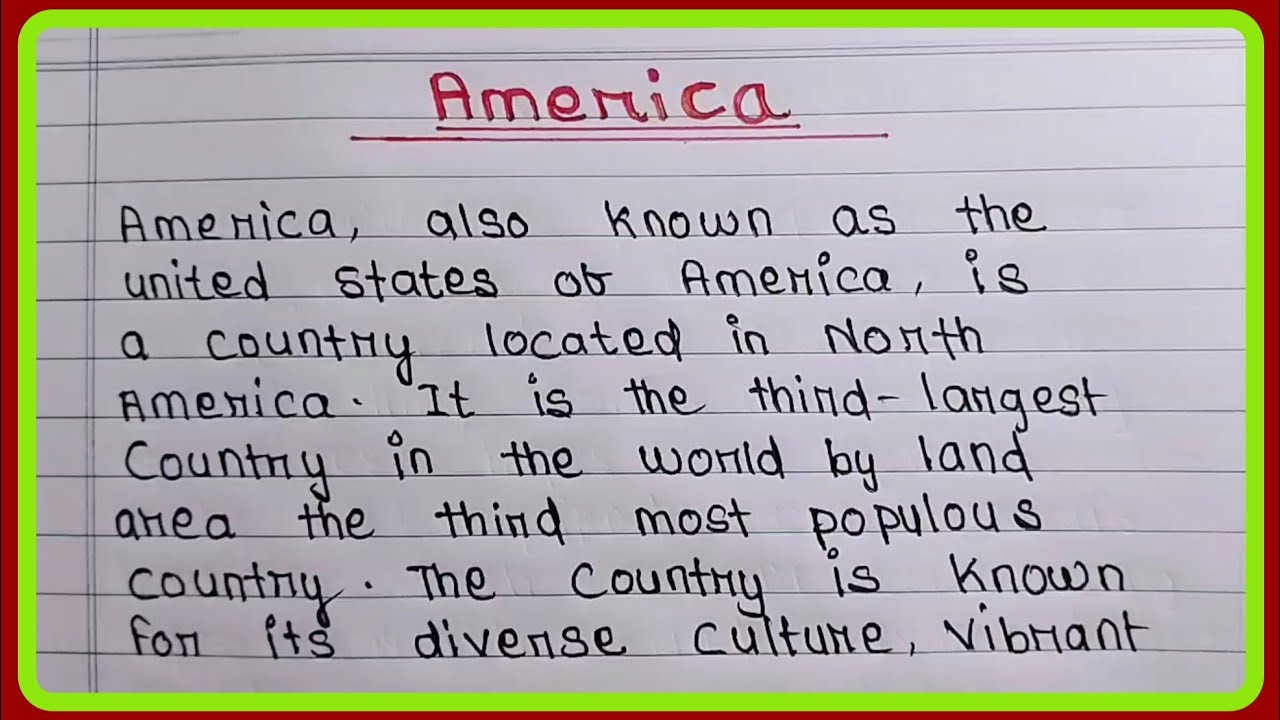 America
America, also known as the
united states of America, is
a country located in North
America. It is the third-largest
Country in the world by land
area the third most populous
country. The Country is known
for its diverse culture, vibrant